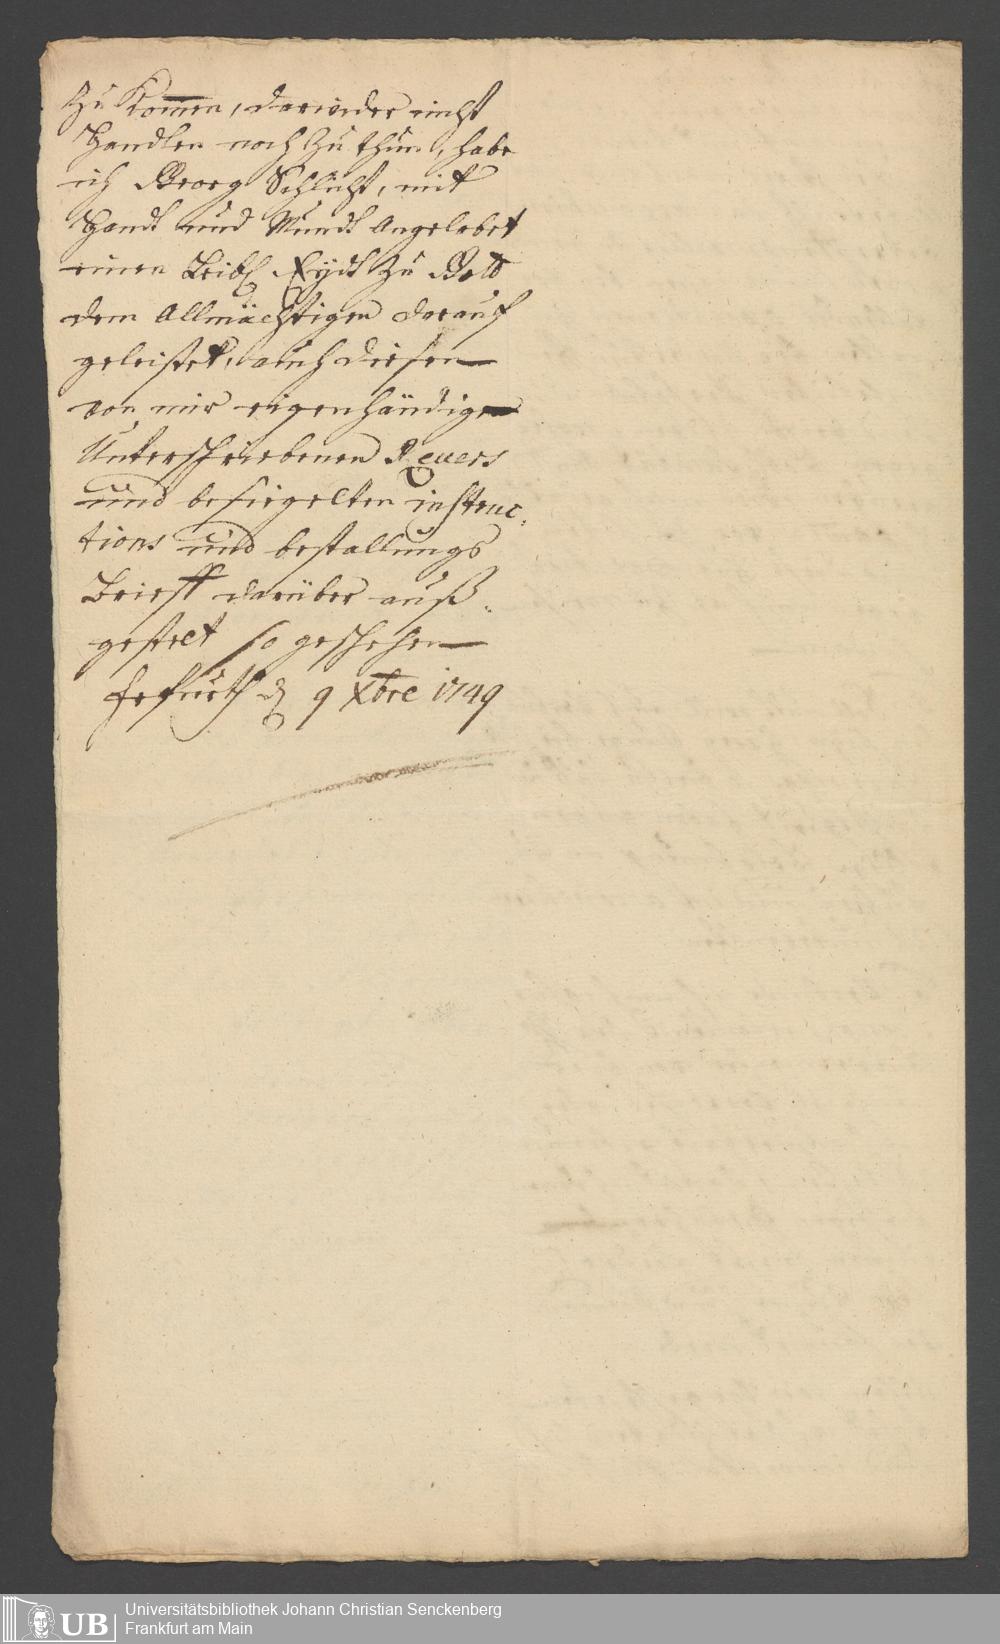 zu kom̅en, darwieder nicht
Handlen noch zu thun, habe
ich Georg Schlicht, mit
Handt und Mundt Angelobet
einen Leibl Eÿdt zu Gott
dem Allmächtigen darauf
geleistet, auch diesen
von mir eigenhändigen
Unterschriebenen Revers
und besiegelten instruc„
tions und bestallungs
Brieff darüber auß„
gestelt so geschehen
Erfurth d 9 Xbre 1749
UB
Universitätsbibliothek Johann Christian Senckenberg
Frankfurt am Main